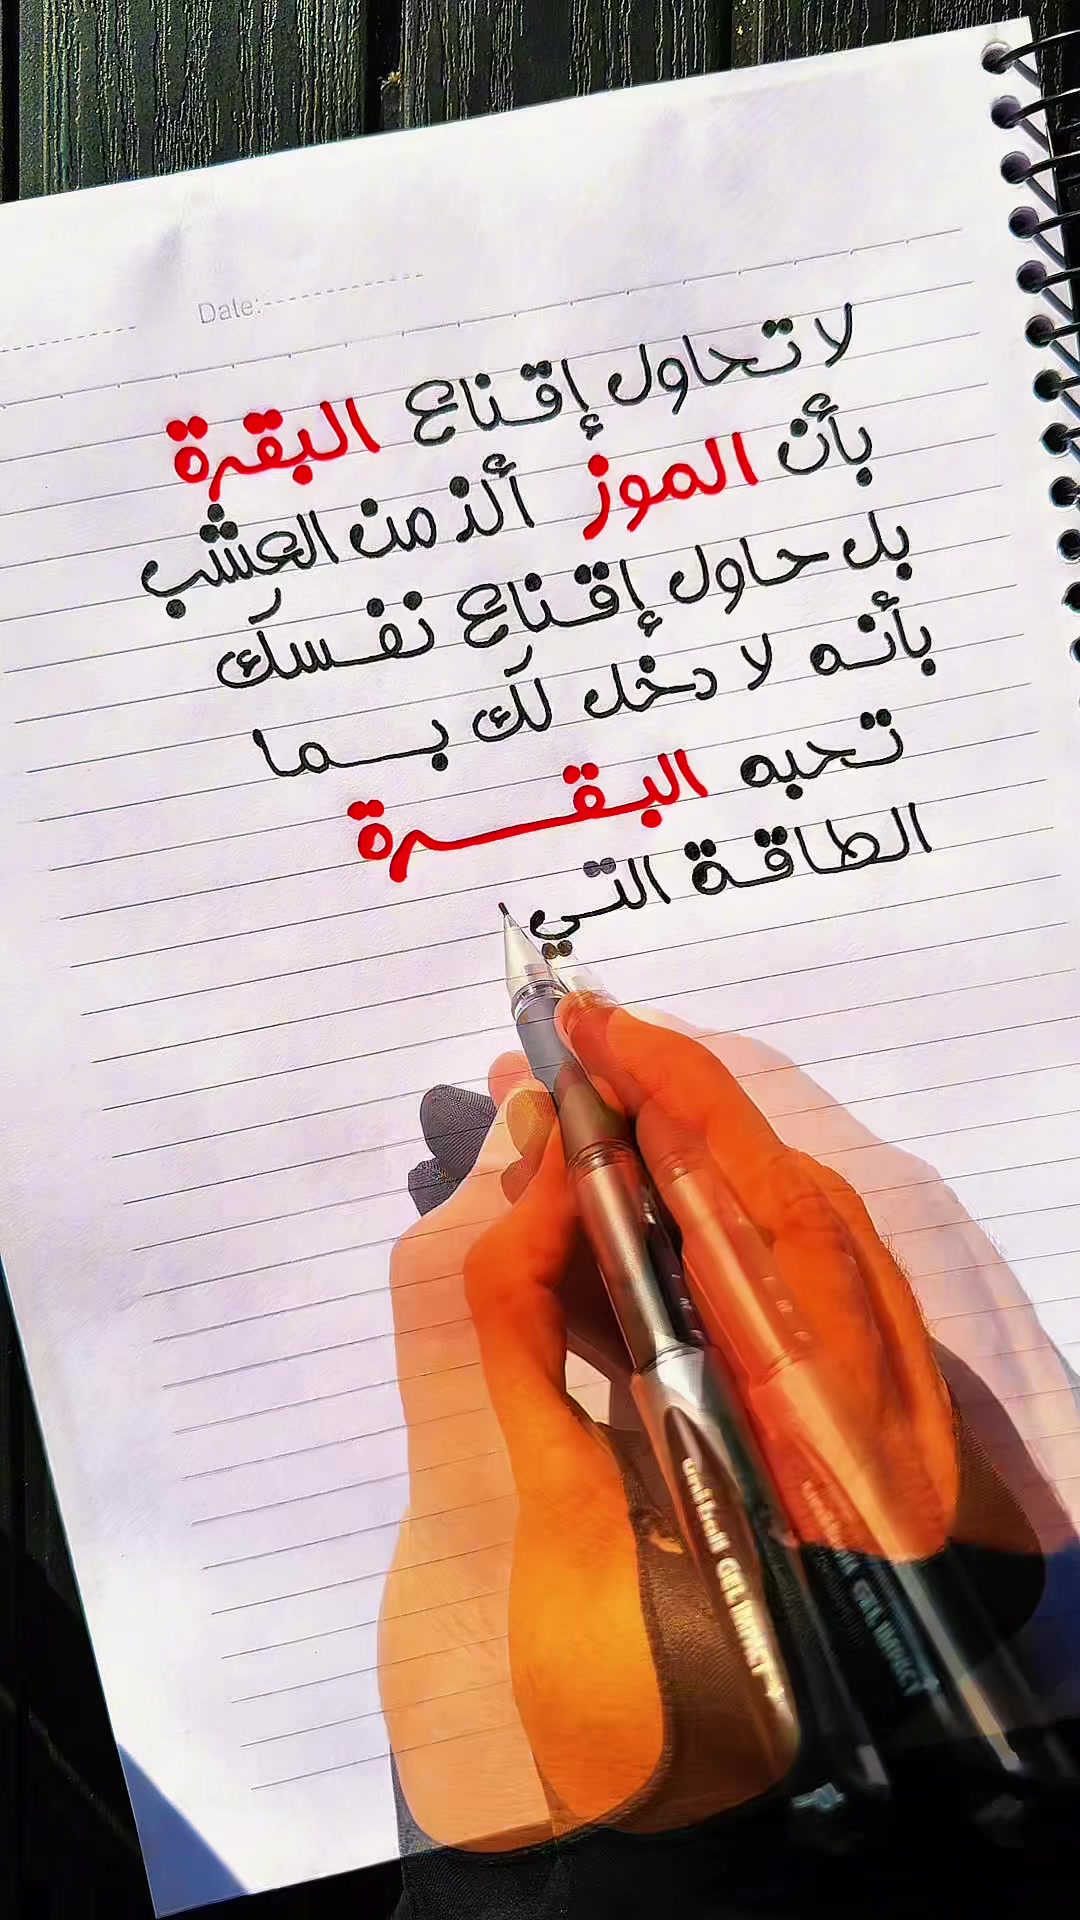 Date:
لا تحاول إقناع البقرة
بأن الموز ألذ من العشب
بل حاول إقناع نفسك
بأنه لا دخل لك بما
تحبه البقرة
الطاقة التي
GEL IMPACT